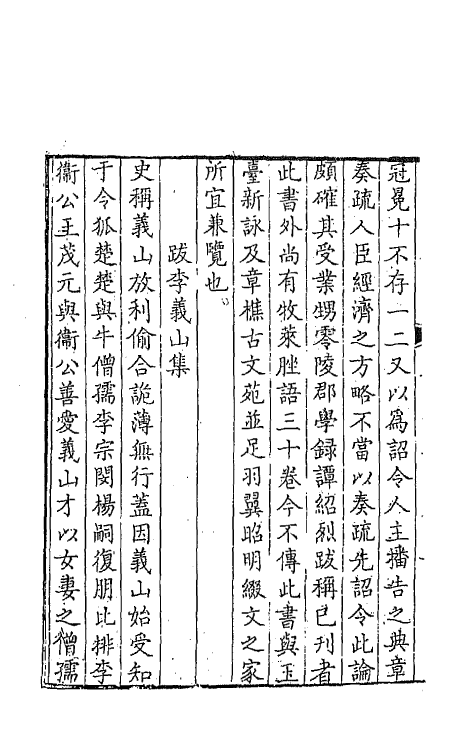 冠冕十不存一二又以爲詔令人主播告之典章
奏疏人臣經濟之方略不當以奏疏先詔令此論
頗確其受業甥零陵郡學録譚紹烈跋稱已刊者
此書外尚有牧萊脞語三十卷今不傳此書與玉
臺新詠及章樵古文苑並足羽翼昭明綴文之家
所宜兼覽也
跋李義山集
史稱義山放利偷合詭薄無行蓋因義山始受知
于令狐楚楚與牛僧孺李宗閔楊嗣復朋比排李
衞公王茂元與衞公善愛義山才以女妻之僧孺